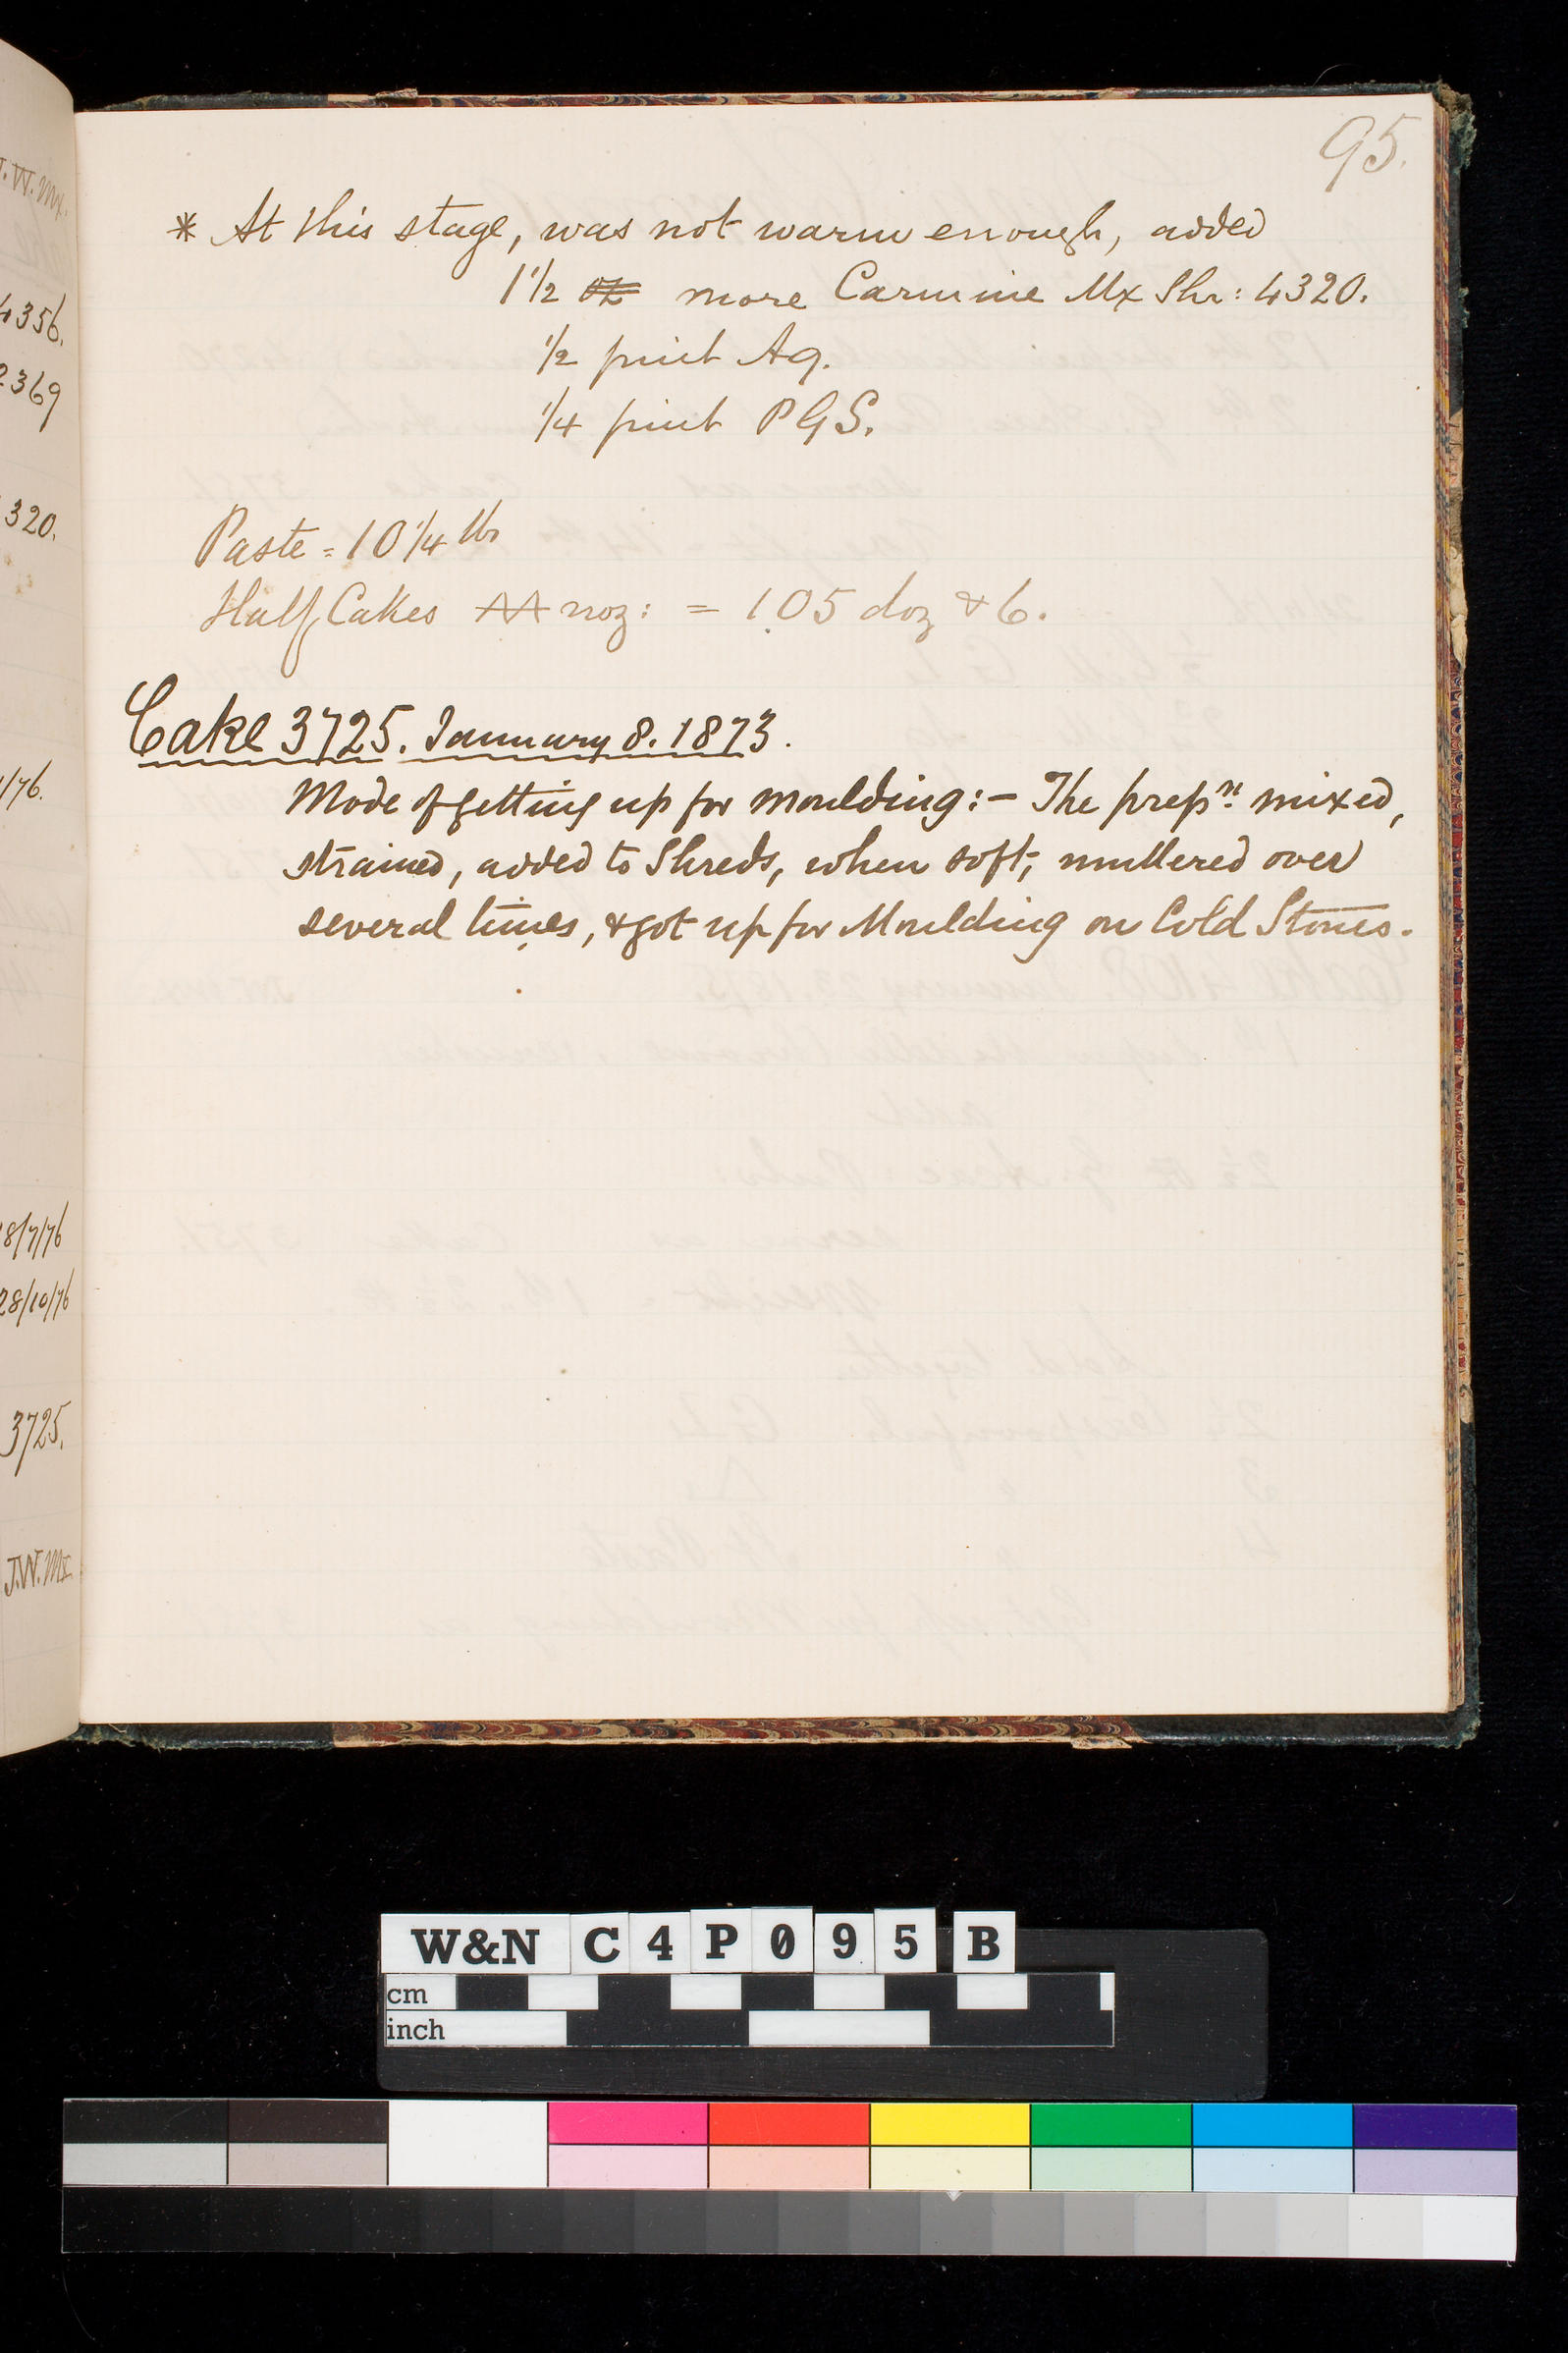 J.W.Mx.
4356.
2369
320.
/76.
18/7/76
28/10/76
3725.
J.W.Mx
95.
* At this stage, was not warm enough, added
1 1/2 oz more Carmine Mx Shr: 4320.
1/2 pint Aq.
1/4 pint PGS.
Paste = 10 1/4 lbs
Half Cakes noz: = 105 doz & 6.
Cake 3725. January 8. 1873.
Mode of getting up for moulding:- The prepn. mixed,
strained, added to Shreds, when soft, mullered over
several times, & got up for Moulding on Cold Stones.
W&N C4P095B
cm
inch